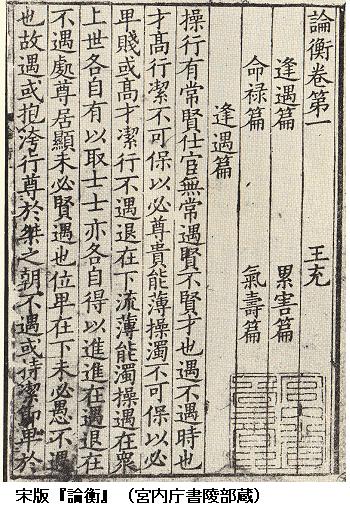 論衡卷第一 王充
逢遇篇 累害篇
命禄篇 氣壽篇
逢遇篇
操行有常賢仕宦無常遇賢不賢才也遇不遇時也
才髙行潔不可保以必尊貴能薄操濁不可保以必
卑賤或髙才潔行不遇退在下流薄能濁操遇在衆
上世各自有以取士士亦各自得以進進在遇退在
不遇處尊居顯未必賢遇也位卑在下未必愚不遇
也故遇或抱洿行尊於桀之朝不遇或持潔節卑於
宋版『論衡』（宮内庁書陵部蔵）